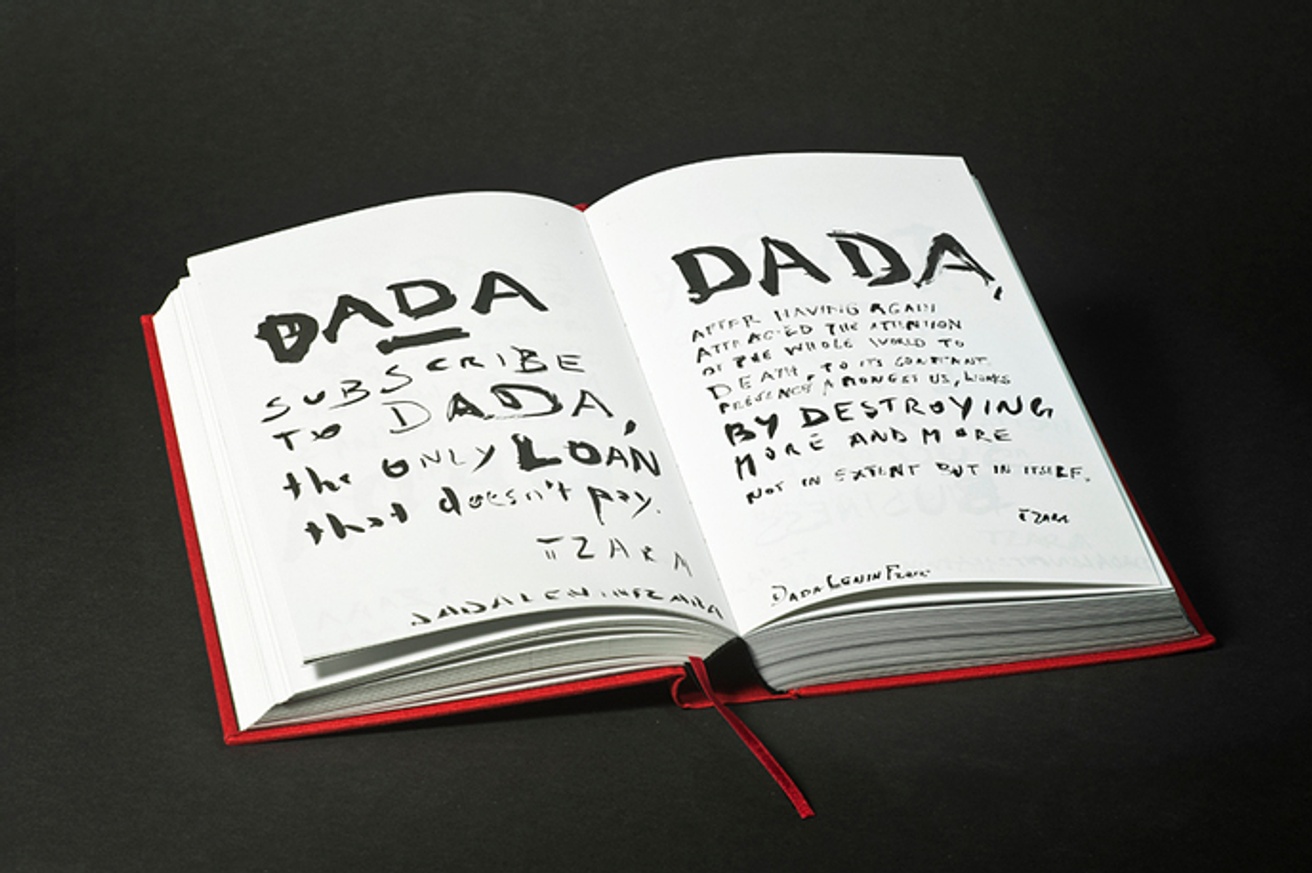 DADA
SUBSCRIBE
TO DADA,
the ONLY LOAN
that doesn't pay.
TZARA
DADALENINTZARA
DADA,
AFTER HAVING AGAIN
ATTRACTED THE ATTENTION
OF THE WHOLE WORLD TO
DEATH, TO ITS CONSTANT
PRESENCE AMONGST US, WORKS
BY DESTROYING
MORE AND MORE
NOT IN EXTENT BUT IN ITSELF.
TZARA
DADA LENIN TZARA